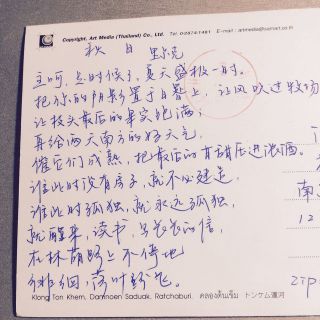 Copyright, Art Media (Thailand) Co., Ltd. Tel: 0-2874-1481 E-mail: artmedia@
秋日 里尔克
主呵，是时候了，夏天盛极一时。
把你的阴影置于日晷上，让风吹过牧场
让枝头最后的果实饱满；
再给两天南方的好天气，
催它们成熟，把最后的甘甜压进浓酒。
谁此时没有房子，就不必建造，
谁此时孤独，就永远孤独，
就醒来，读书，写长长的信，
在林荫路上不停地
徘徊，落叶纷飞。
南
12
ZIP
Klong Ton Khem, Damnoen Saduak, Ratchaburi. คลองต้นเข็ม トンケム運河